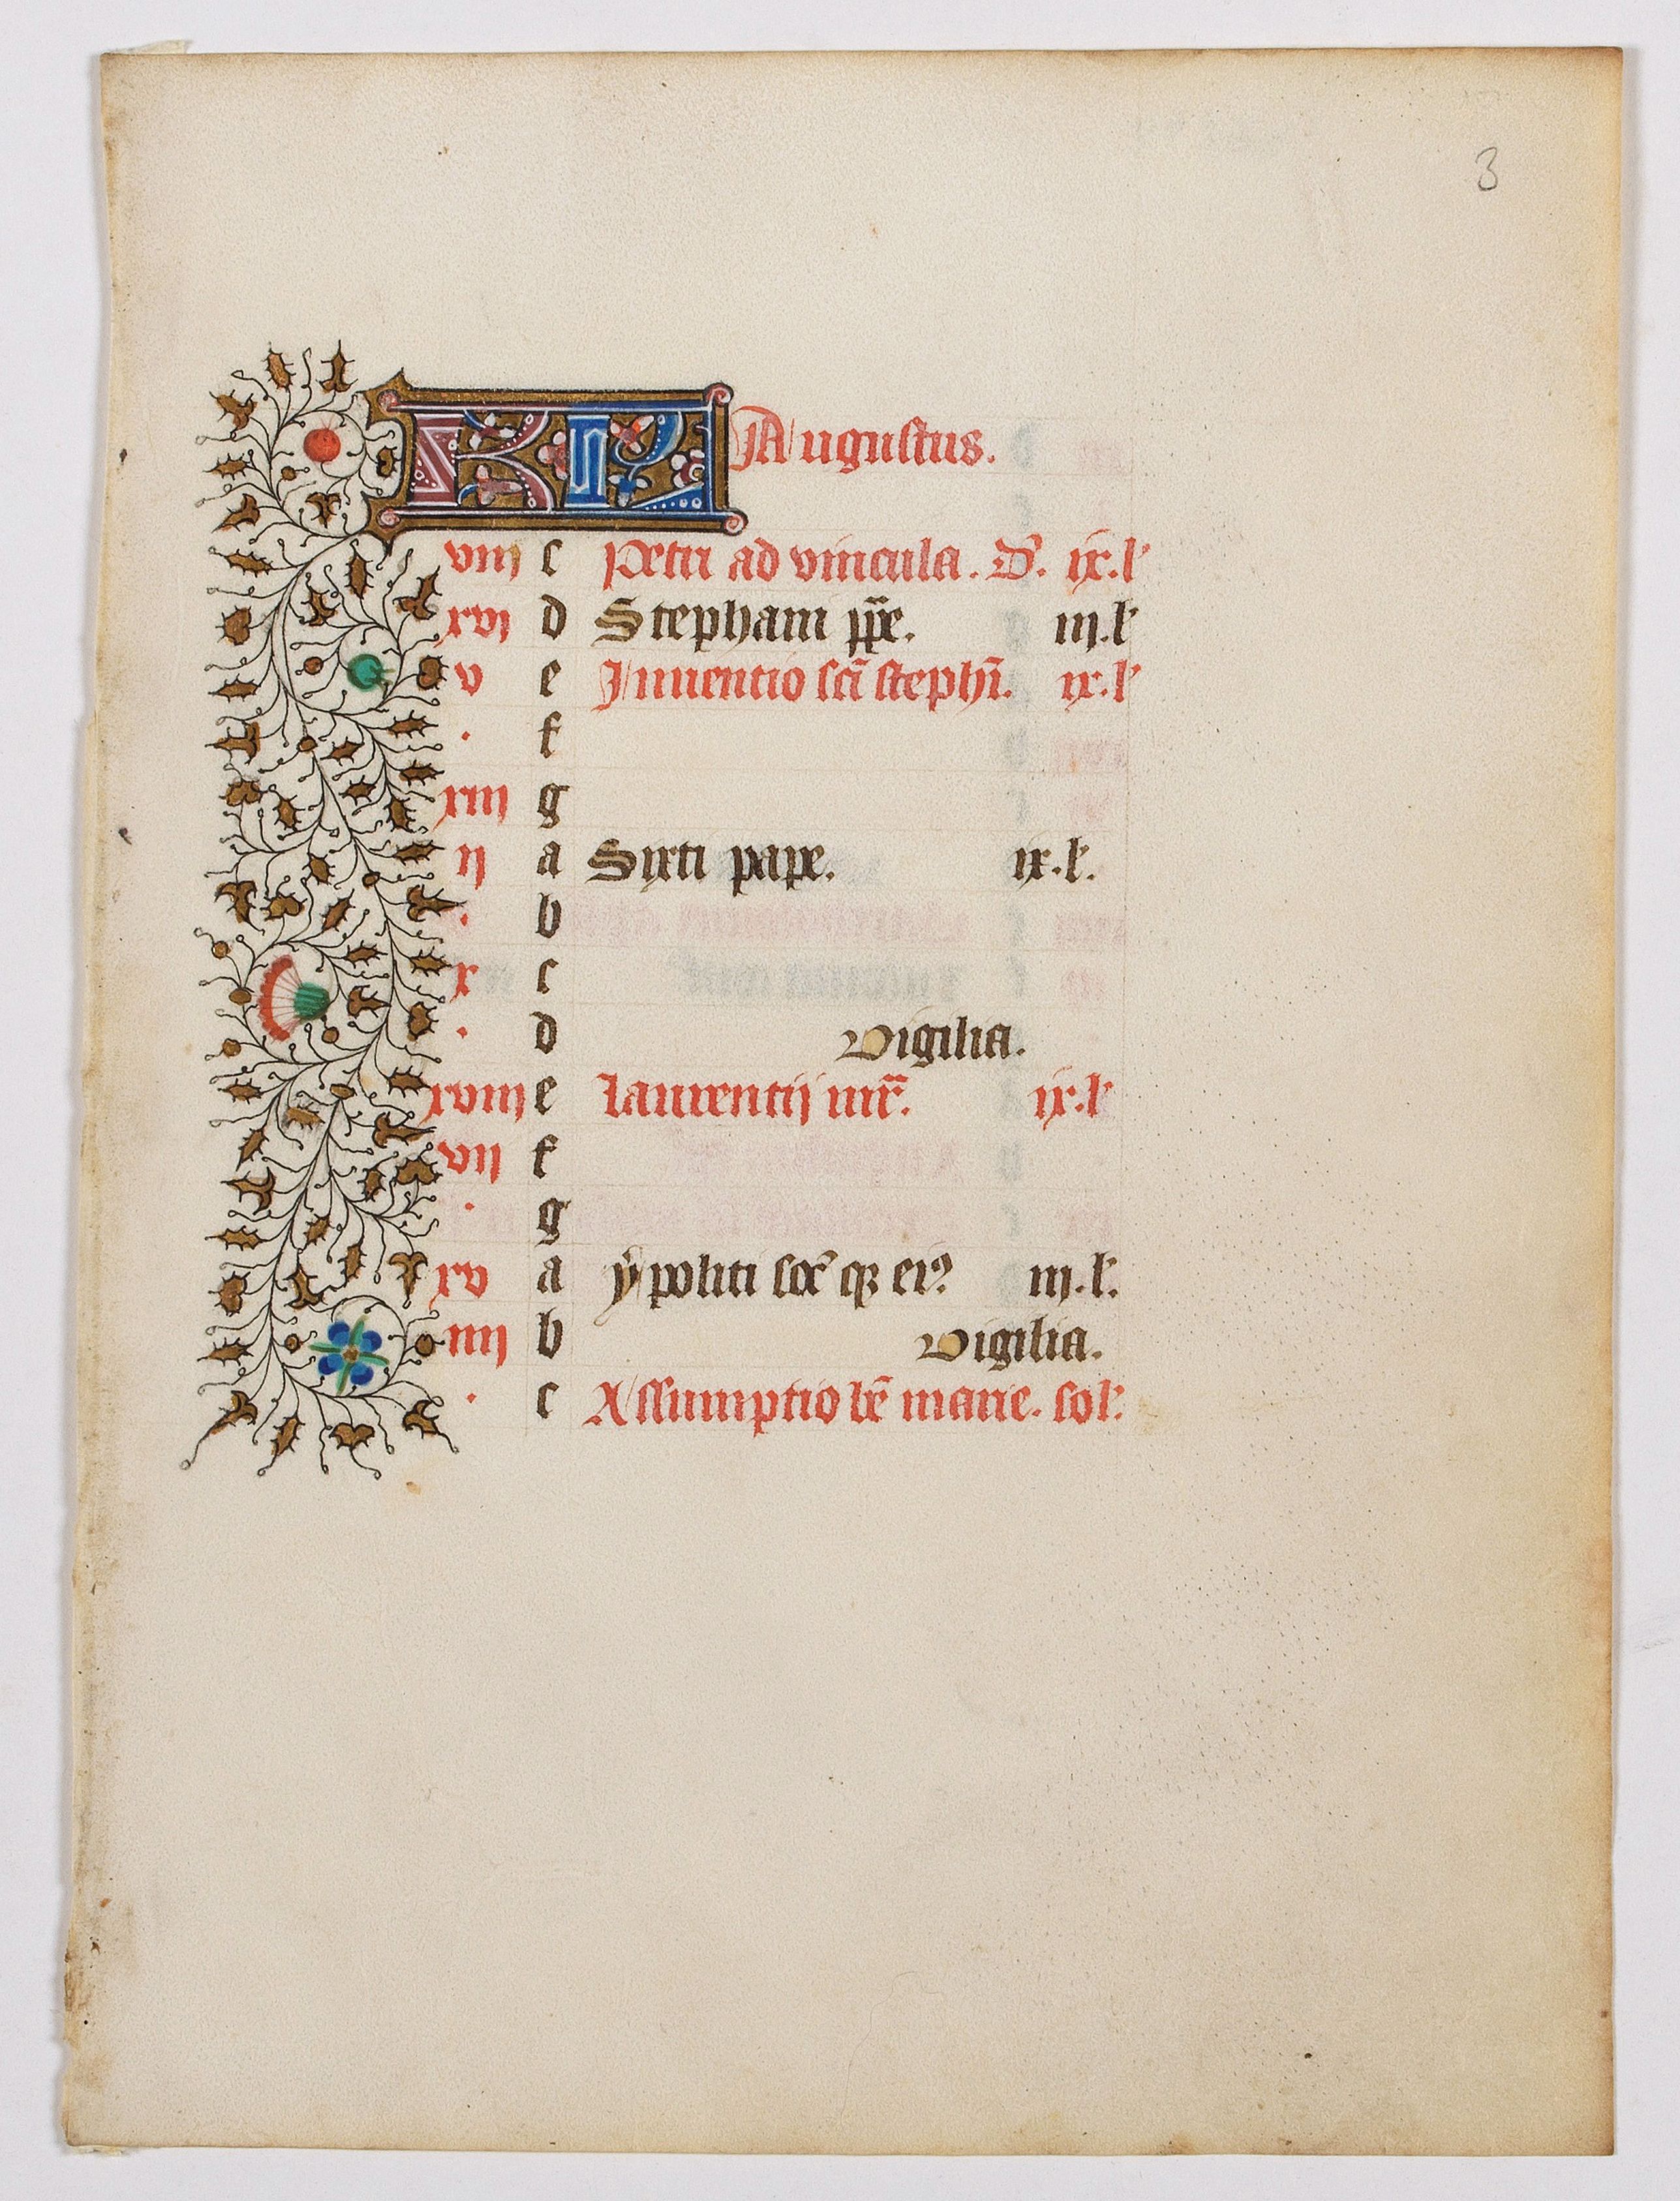 3
KL Augustus.
viij c Petri ad vincula. D. ix.l'
xvj d Stephani pp̄e. iij.l'
v e Inuentio sc̄i steph̄i. ix.l'
. f
xiij g
ij a Sixti pape. ix.l'.
. b
x c
. d Vigilia.
xviij e Laurentij mr̄. ix.l'
vij f
. g
xv a ypoliti soc̄ qꝫ eiꝰ iij.l'.
iiij b Vigilia.
. c Assumptio bē marie. sol'.